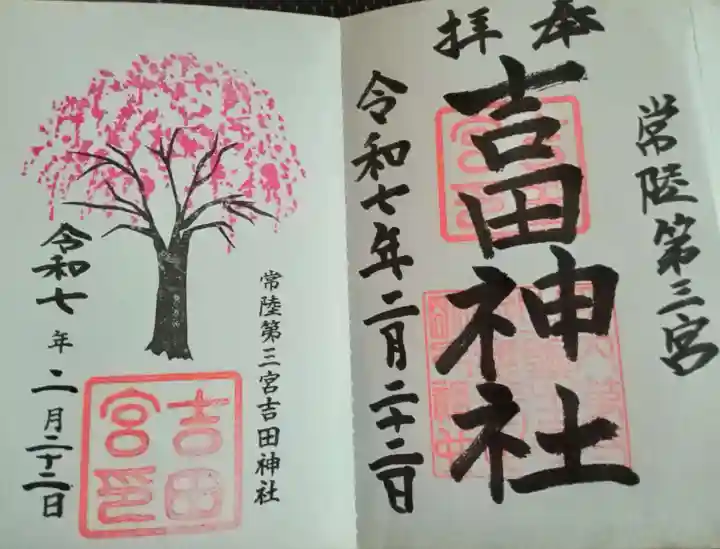 常陸第三宮
奉拝
吉田神社
令和七年二月二十二日
常陸第三宮吉田神社
吉田
宮印
令和七年二月二十二日